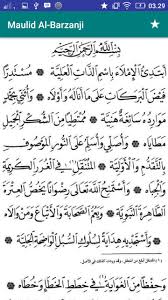 03.29
Maulid Al-Barzanji
بِسْمِ اللهِ الرَّحْمٰنِ الرَّحِيْمِ
أَبْتَدِئُ الْإِمْلَاءَ بِاسْمِ الذَّاتِ الْعَلِيَّةِ ❋ مُسْتَدِرًّا
فَيْضَ الْبَرَكَاتِ عَلَى مَا أَنَالَهُ وَأَوْلَاهُ ❋ وَأُثَنِّيْ بِحَمْدٍ
مَوَارِدُهُ سَائِغَةٌ هَنِيَّةٌ ❋ مُمْتَطِيًا مِنَ الشُّكْرِ الْجَمِيْلِ
مَطَايَاهُ ❋ وَأُصَلِّيْ وَأُسَلِّمُ عَلَى النُّوْرِ الْمَوْصُوْفِ
بِالتَّقَدُّمِ وَالْأَوَّلِيَّةِ ❋ الْمُنْتَقِلِ فِي الْغُرَرِ الْكَرِيْمَةِ
وَالْجِبَاهِ ❋ وَأَسْتَمْنِحُ اللهَ تَعَالَى رِضْوَانًا يَخُصُّ الْعِتْرَةَ
الطَّاهِرَةَ النَّبَوِيَّةَ ❋ وَيَعُمُّ الصَّحَابَةَ وَالْأَتْبَاعَ وَمَنْ وَالَاهُ
❋ وَأَسْتَجْدِيْهِ هِدَايَةً لِسُلُوْكِ السُّبُلِ الْوَاضِحَةِ الْجَلِيَّةِ
❋ وَحِفْظًا مِنَ الْغَوَايَةِ فِيْ خِطَطِ الْخَطَاءِ وَخُطَاهُ ❋